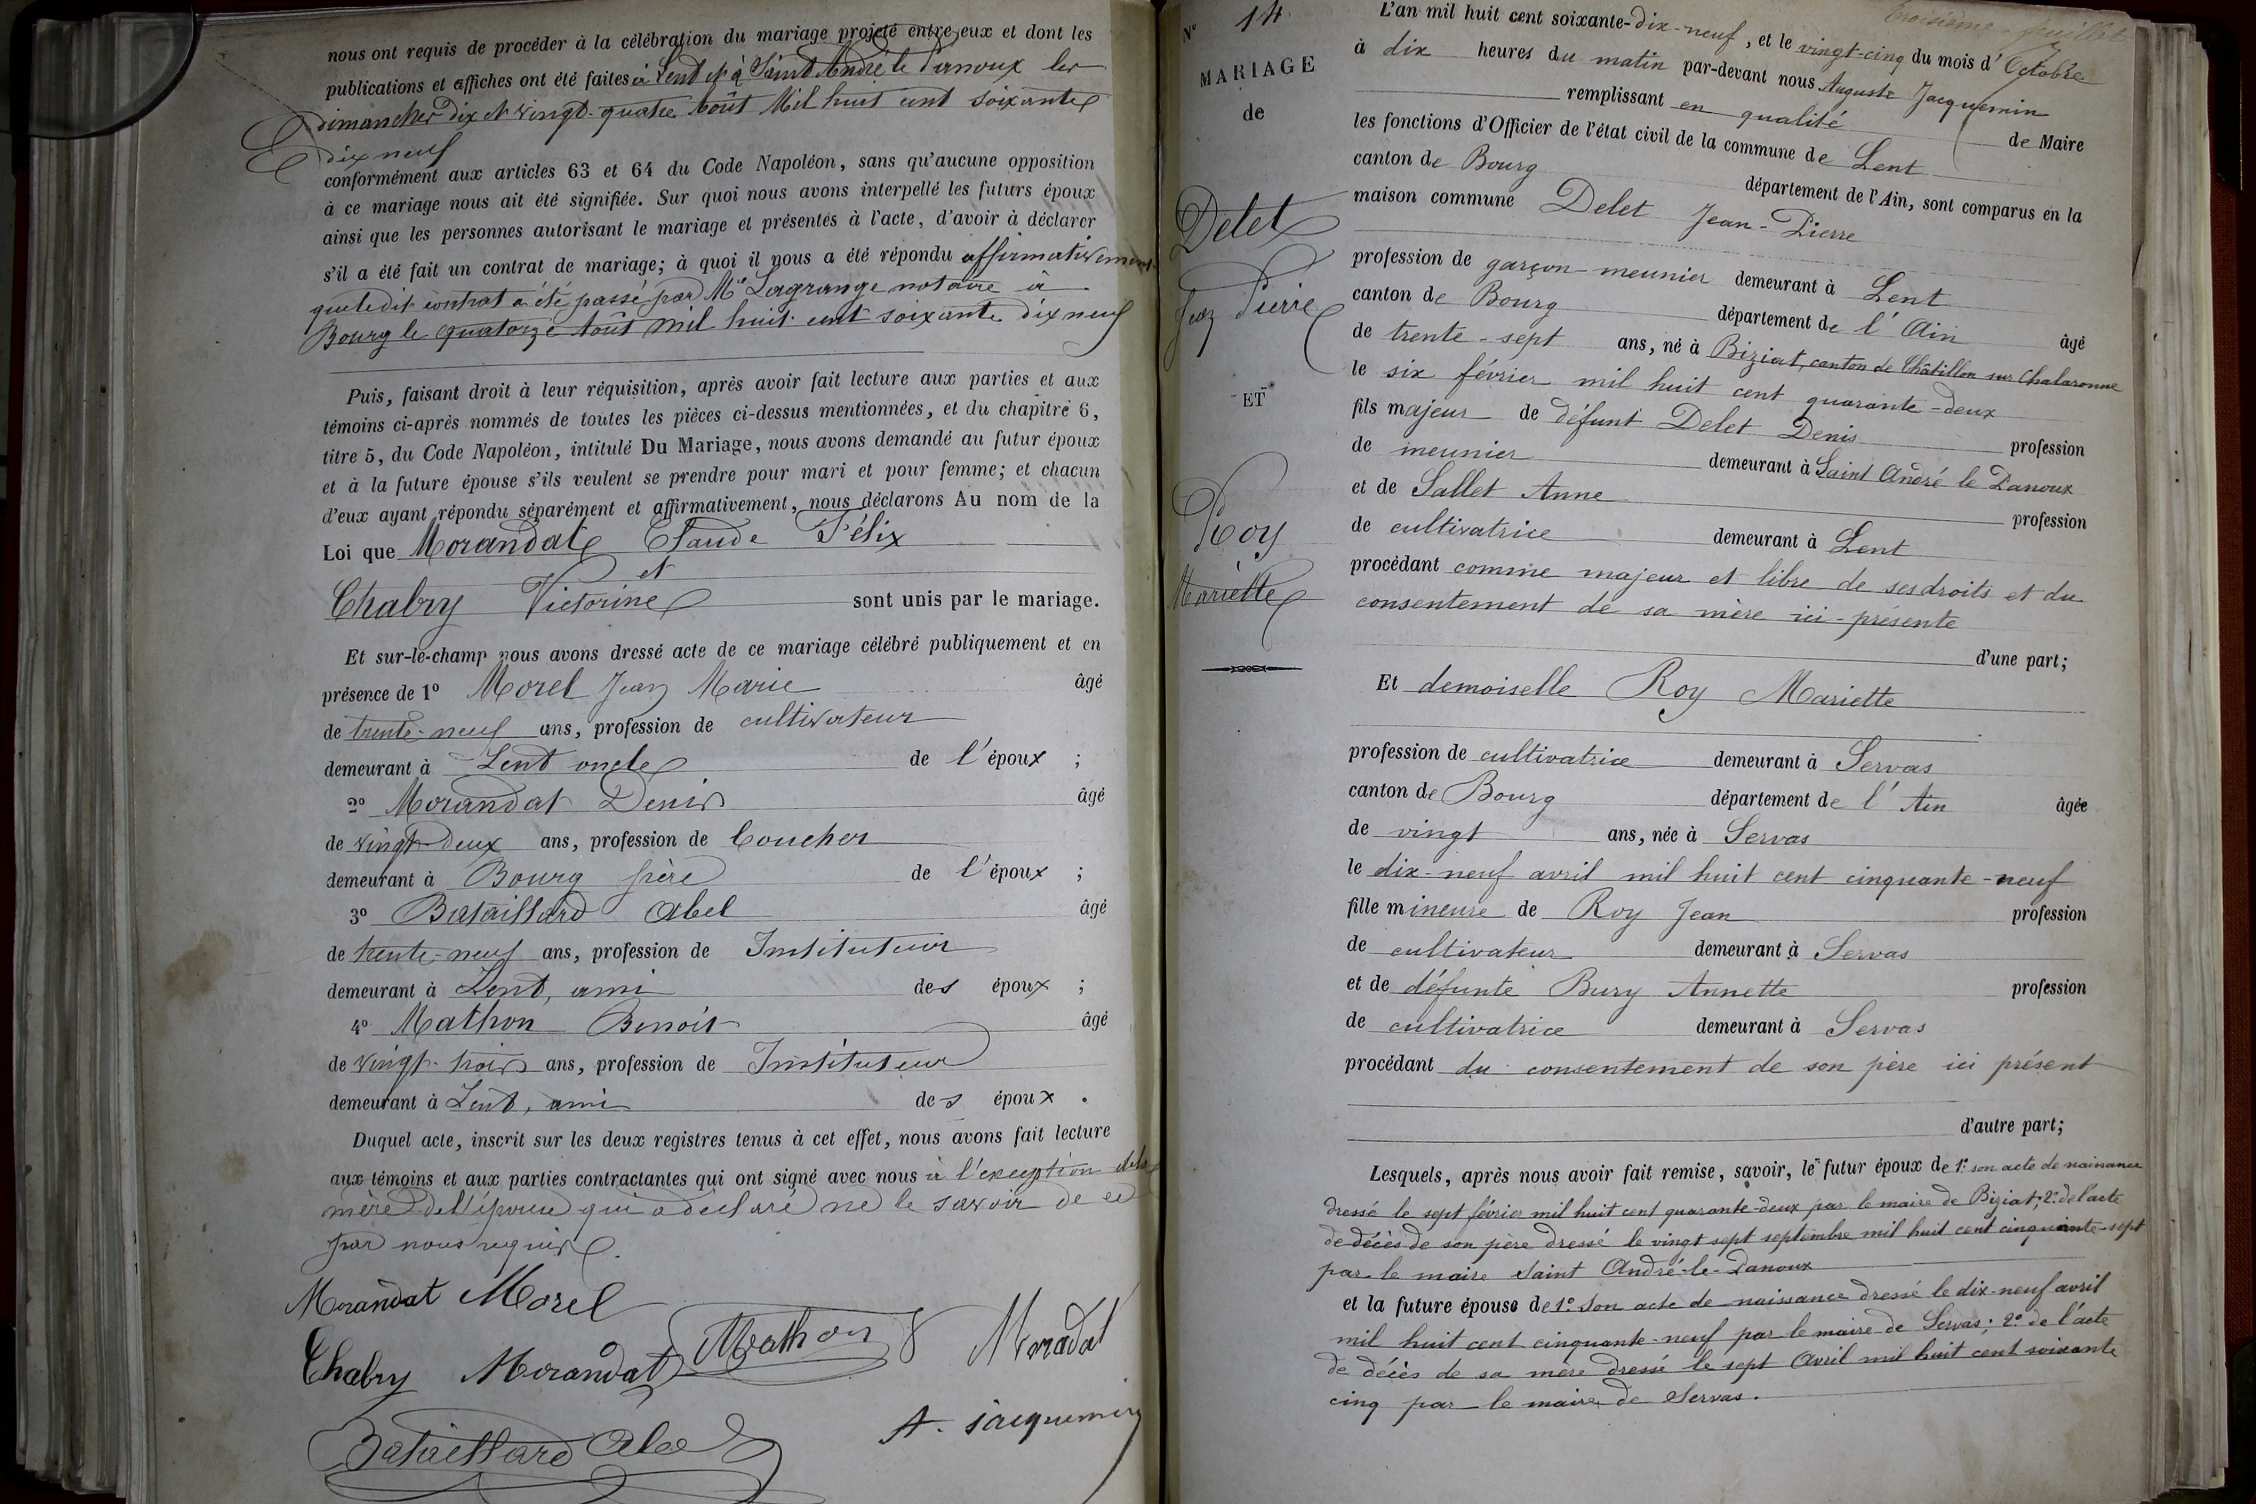 nous ont requis de procéder à la célébration du mariage projeté entre eux et dont les
publications et affiches ont été faites à Lent et à Saint André le Panoux les
dimanches dix et vingt-quatre Août Mil huit cent soixante
dix neuf
conformément aux articles 63 et 64 du Code Napoléon, sans qu'aucune opposition
à ce mariage nous ait été signifiée. Sur quoi nous avons interpellé les futurs époux
ainsi que les personnes autorisant le mariage et présentes à l'acte, d'avoir à déclarer
s'il a été fait un contrat de mariage; à quoi il nous a été répondu affirmativement
que ledit contrat a été passé par Me Lagrange notaire à
Bourg le quatorze Août mil huit cent soixante dix neuf
Puis, faisant droit à leur réquisition, après avoir fait lecture aux parties et aux
témoins ci-après nommés de toutes les pièces ci-dessus mentionnées, et du chapitre 6,
titre 5, du Code Napoléon, intitulé Du Mariage, nous avons demandé au futur époux
et à la future épouse s'ils veulent se prendre pour mari et pour femme; et chacun
d'eux ayant répondu séparément et affirmativement, nous déclarons Au nom de la
Loi que Morandat Claude Félix
et
Chabry Victorine sont unis par le mariage.
Et sur-le-champ nous avons dressé acte de ce mariage célébré publiquement et en
présence de 1º Morel Jean Marie âgé
de trente-neuf ans, profession de cultivateur
demeurant à Lent oncle de l'époux ;
2º Morandat Denis âgé
de vingt-deux ans, profession de Cocher
demeurant à Bourg frère de l'époux ;
3º Bataillard Abel âgé
de trente-neuf ans, profession de Instituteur
demeurant à Lent, ami des époux ;
4º Mathon Benoit âgé
de vingt-trois ans, profession de Instituteur
demeurant à Lent, ami des époux .
Duquel acte, inscrit sur les deux registres tenus à cet effet, nous avons fait lecture
aux témoins et aux parties contractantes qui ont signé avec nous à l'exception de la
mère de l'épouse qui a déclaré ne le savoir de ce
par nous requise.
Morandat Morel
Chabry Morandat Mathon Moradat
Bataillard Abel A. Jacquemin
Nº 14
MARIAGE
de
Delet
Jean Pierre
ET
Roy
Mariette
troisième juillet
L'an mil huit cent soixante-dix-neuf, et le vingt-cinq du mois d'Octobre
à dix heures du matin par-devant nous Auguste Jacquemin
remplissant en qualité de Maire
les fonctions d'Officier de l'état civil de la commune de Lent
canton de Bourg département de l'Ain, sont comparus en la
maison commune Delet Jean-Pierre
profession de garçon-meunier demeurant à Lent
canton de Bourg département de l'Ain âgé
de trente-sept ans, né à Biziat, canton de Châtillon sur Chalaronne
le six février mil huit cent quarante-deux
fils majeur de défunt Delet Denis profession
de meunier demeurant à Saint André le Panoux
et de Sallet Anne profession
de cultivatrice demeurant à Lent
procédant comme majeur et libre de ses droits et du
consentement de sa mère ici-présente
d'une part;
Et demoiselle Roy Mariette
profession de cultivatrice demeurant à Servas
canton de Bourg département de l'Ain âgée
de vingt ans, née à Servas
le dix-neuf avril mil huit cent cinquante-neuf
fille mineure de Roy Jean profession
de cultivateur demeurant à Servas
et de défunte Bury Annette profession
de cultivatrice demeurant à Servas
procédant du consentement de son père ici présent
d'autre part;
Lesquels, après nous avoir fait remise, savoir, le futur époux de 1º son acte de naissance
dressé le sept février mil huit cent quarante-deux par le maire de Biziat; 2º de l'acte
de décès de son père dressé le vingt sept septembre mil huit cent cinquante-sept
par le maire Saint André-le-Panoux
et la future épouse de 1º Son acte de naissance dressé le dix-neuf avril
mil huit cent cinquante-neuf par le maire de Servas; 2º de l'acte
de décès de sa mère dressé le sept Avril mil huit cent soixante
cinq par le maire de Servas.